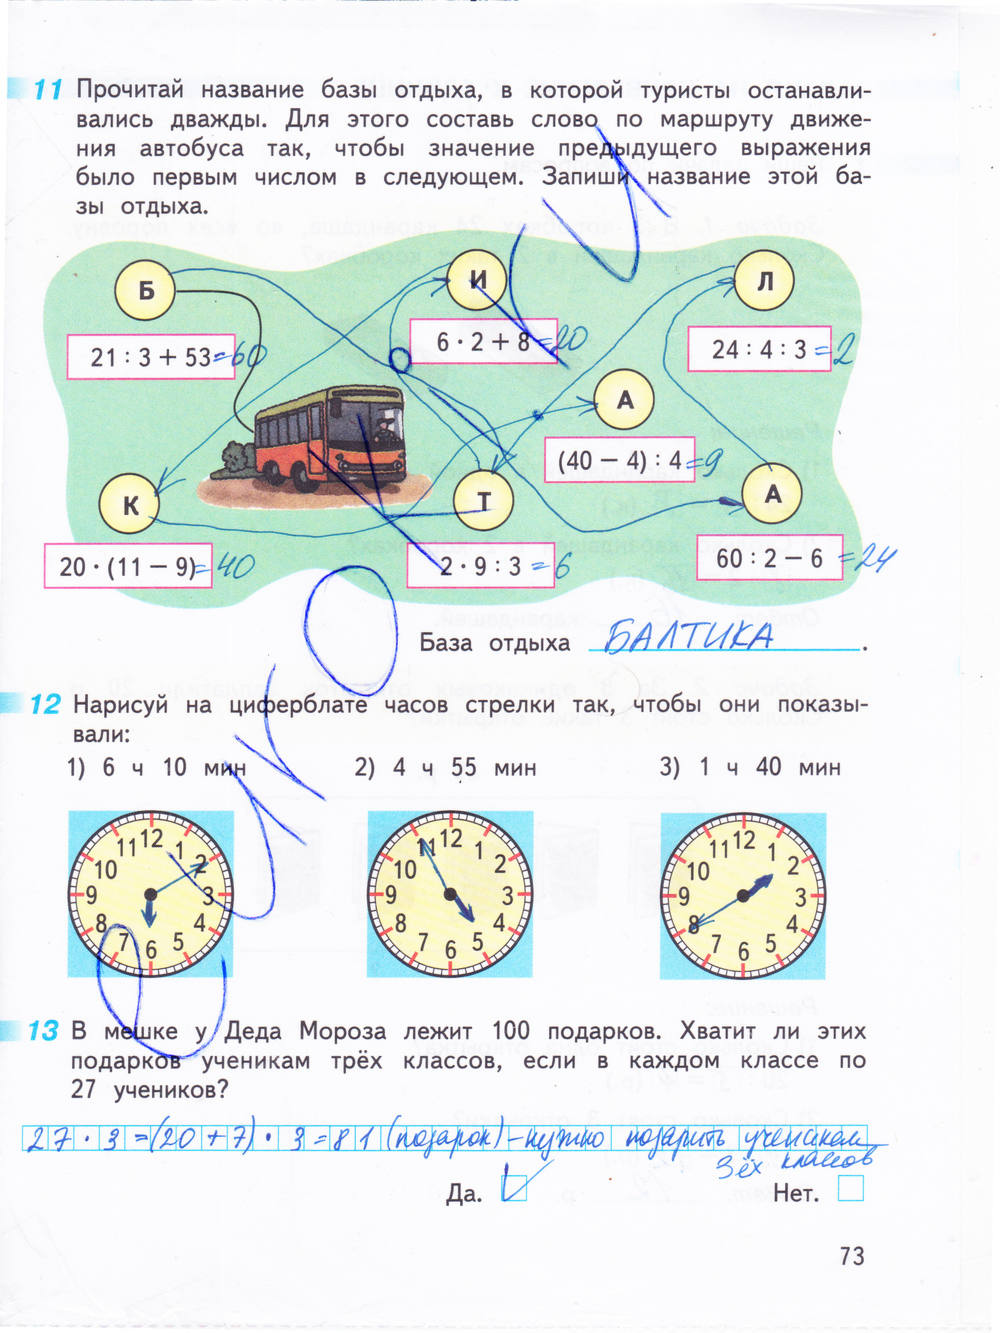 11 Прочитай название базы отдыха, в которой туристы останавли-
вались дважды. Для этого составь слово по маршруту движе-
ния автобуса так, чтобы значение предыдущего выражения
было первым числом в следующем. Запиши название этой ба-
зы отдыха.
Б И Л
21 : 3 + 53 = 60
6 · 2 + 8 = 20
24 : 4 : 3 = 2
А
(40 − 4) : 4 = 9
К Т А
20 · (11 − 9) = 40
2 · 9 : 3 = 6
60 : 2 − 6 = 24
База отдыха БАЛТИКА.
12 Нарисуй на циферблате часов стрелки так, чтобы они показы-
вали:
1) 6 ч 10 мин 2) 4 ч 55 мин 3) 1 ч 40 мин
12 1 2 3 4 5 6 7 8 9 10 11
12 1 2 3 4 5 6 7 8 9 10 11
12 1 2 3 4 5 6 7 8 9 10 11
13 В мешке у Деда Мороза лежит 100 подарков. Хватит ли этих
подарков ученикам трёх классов, если в каждом классе по
27 учеников?
27 · 3 = (20 + 7) · 3 = 81 (подарок) – нужно подарить ученикам
3ёх классов
Да. Нет.
73